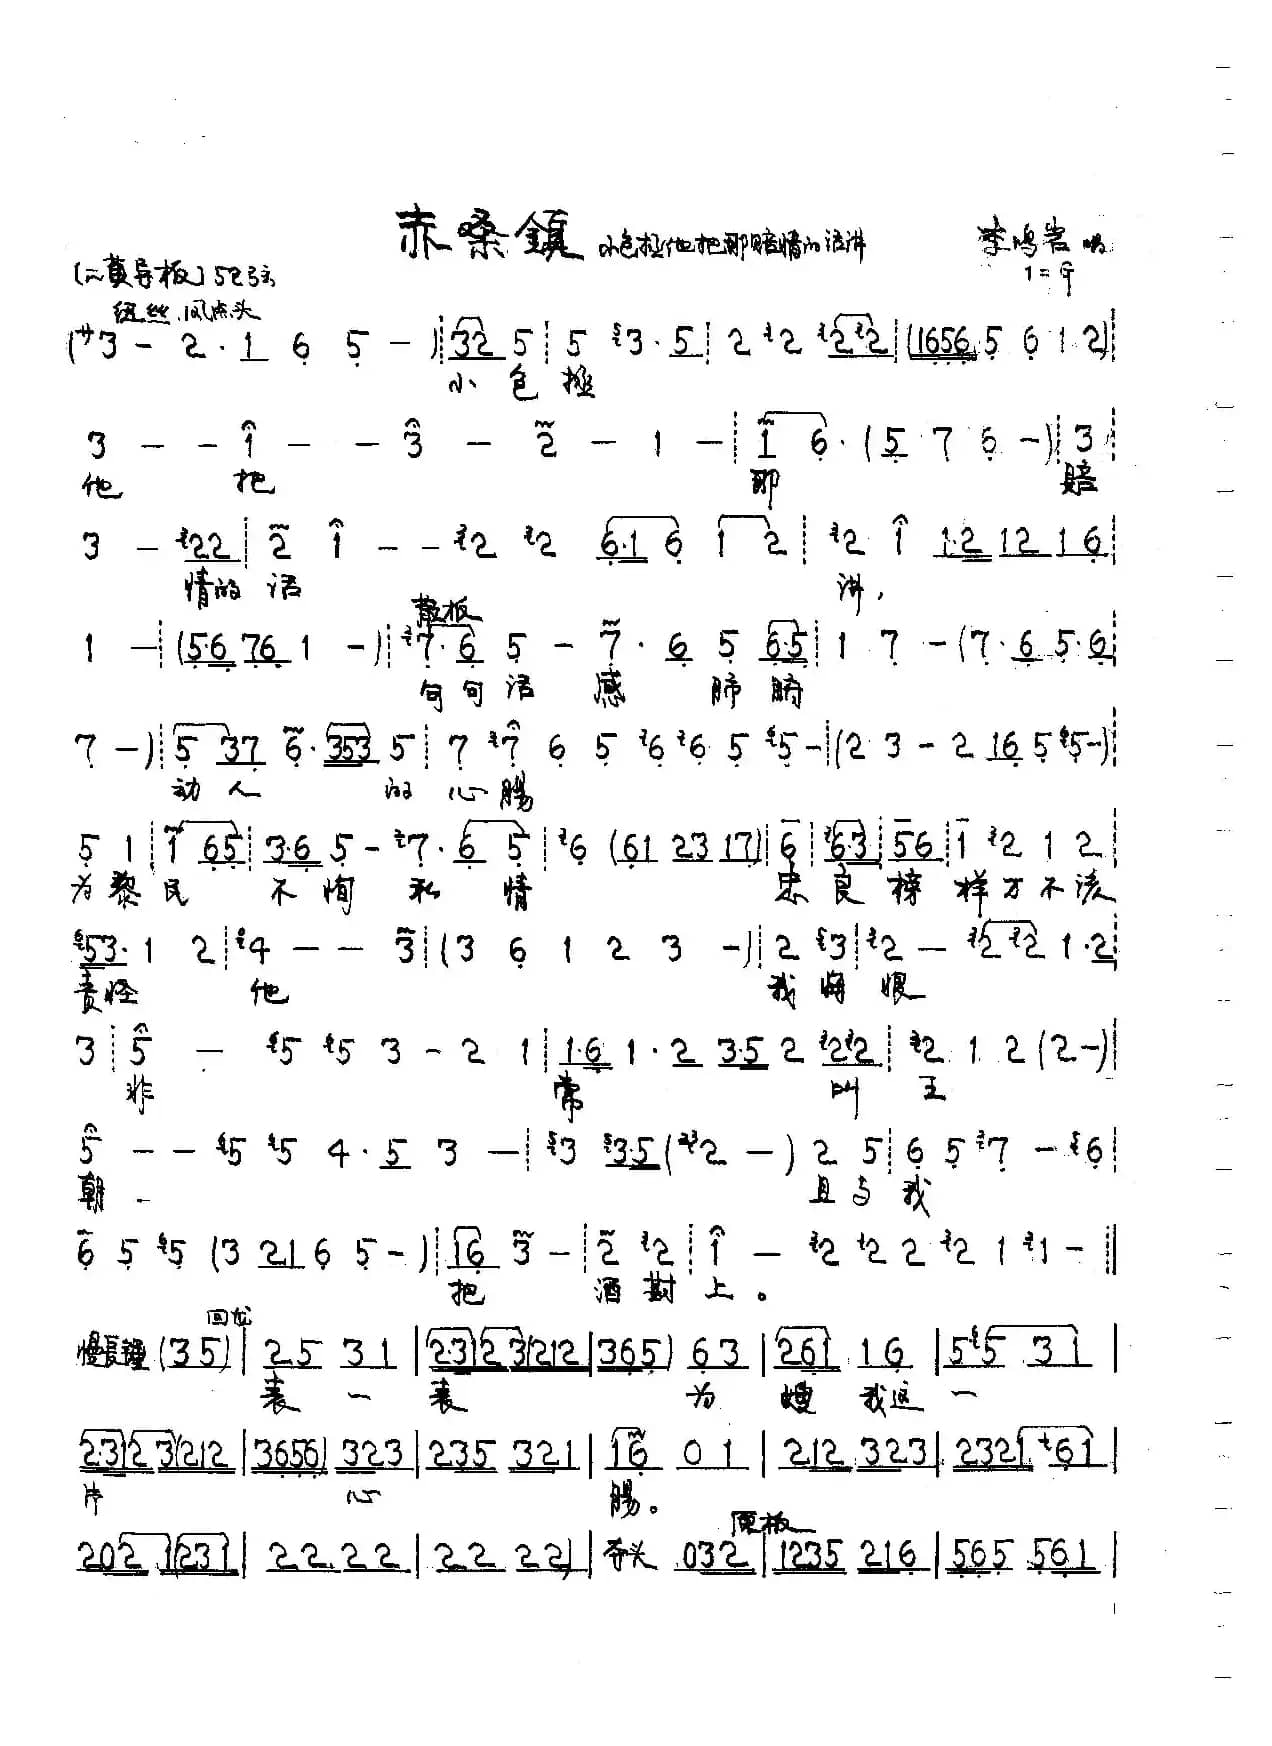 赤桑鎮 小包拯他把那赔情的话讲 李鸣岩 唱
1=
(二黄导板) 52弦
纽丝 风点头
(サ3 - 2·1 6 5 -) 32 5 5 3·5 2 2 2 2 (1656 5 6 1 2)
小 包 拯
3 - - 1 - - 3 - 2 - 1 - 1 6·(5 7 6 -) 3
他 把 那 赔
3 - 22 2 1 - - 2 2 6·1 6 1 2 2 1 1·2 12 16
情的 话 讲,
散板
1 - (5·6 76 1 -) 7·6 5 - 7·6 5 6·5 1 7 - (7·6 5·6
句句话 感 肺腑
7 -) 5 37 6·353 5 7 7 6 5 6 6 5 5 - (2 3 - 2 16 5 5 -)
动人 的 心腸
5 1 1 65 3·6 5 - 7·6 5 6 (61 23 17) 6 6·3 56 1 2 1 2
为黎民 不恂私情 忠良榜样才不该
53·1 2 4 - - 3 (3 6 1 2 3 -) 2 3 2 - 2 2 1·2
责怪 他 我将恨
3 5 - 5 5 3 - 2 1 1·6 1·2 3·5 2 22 2 1 2 (2 -)
非 常 叫 王
5 - - 5 5 4·5 3 - 3 3·5 (2 -) 2 5 6 5 7 - 6
朝 - 且与我
6 5 5 (3 21 6 5 -) 16 3 - 2 2 1 - 2 2 2 2 1 1 -
把 酒斟上。
回龙
慢長錘 (35) 25 31 2·312 3(212 365) 63 261 16 5 5 31
表一表 为嫂我这一
2·312 3(212 3656) 323 235 321 16 01 212 323 2321 61
片 心 腸。
原板
202 1(231 22.22 22 22) 夺头 032 1235 216 565 561